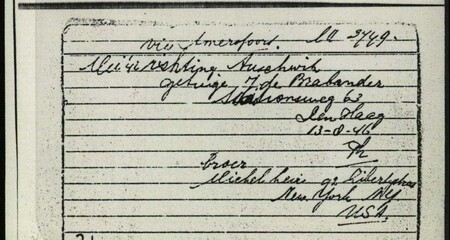 via Amersfoort. 3779.
richting Auschwitz
getuige J. de Brabander
Stationsweg 63
Den Haag
13-8-46
Th
broer
Michel
New York NY
USA.